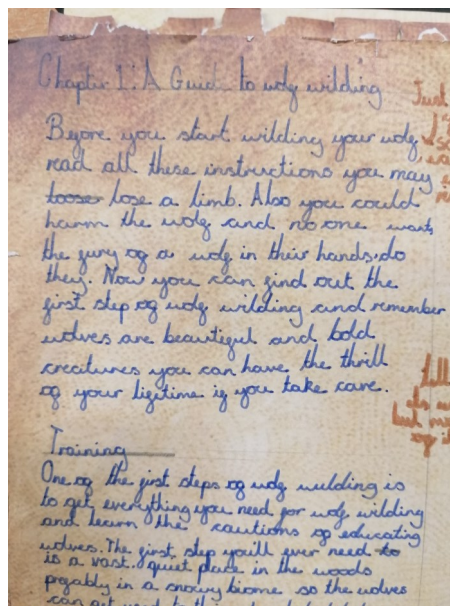 Chapter 1: A Guide to wolf wilding
Before you start wilding your wolf
read all these instructions you may
looser lose a limb. Also you could
harm the wolf and no one wants
the fury of a wolf in their hands do
they. Now you can find out the
first step of wolf wilding and remember
wolves are beautiful and bold
creatures you can have the thrill
of your lifetime if you take care.
Training
One of the first steps of wolf wilding is
to get everything you need for wolf wilding
and learn the cautions of educating
wolves. The first step you'll ever need to
is a vast quiet place in the woods
in a snowy biome so the wolves
can get used to
Just